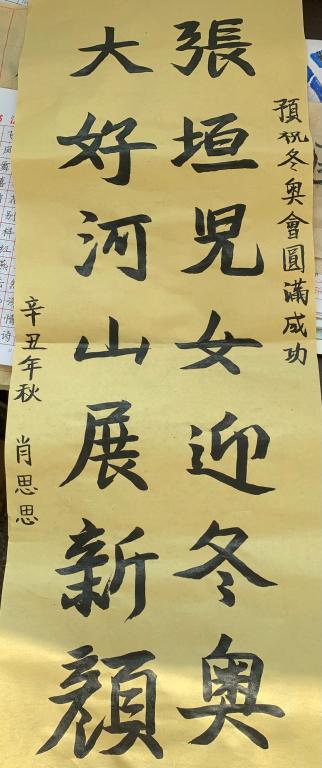 預祝冬奥會圓滿成功
張垣児女迎冬奥
大好河山展新顔
辛丑年秋 肖思思